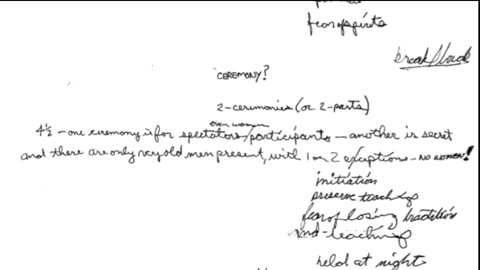 fear of spirits
break/lunch
CEREMONY?
2-ceremonies (or 2-parts)
even women
4½ - one ceremony is for spectators/participants - another is secret
and there are only very old men present, with 1 or 2 exceptions - no women!
initiation
preserve teachings
fear of losing tradition
and-teaching
held at night